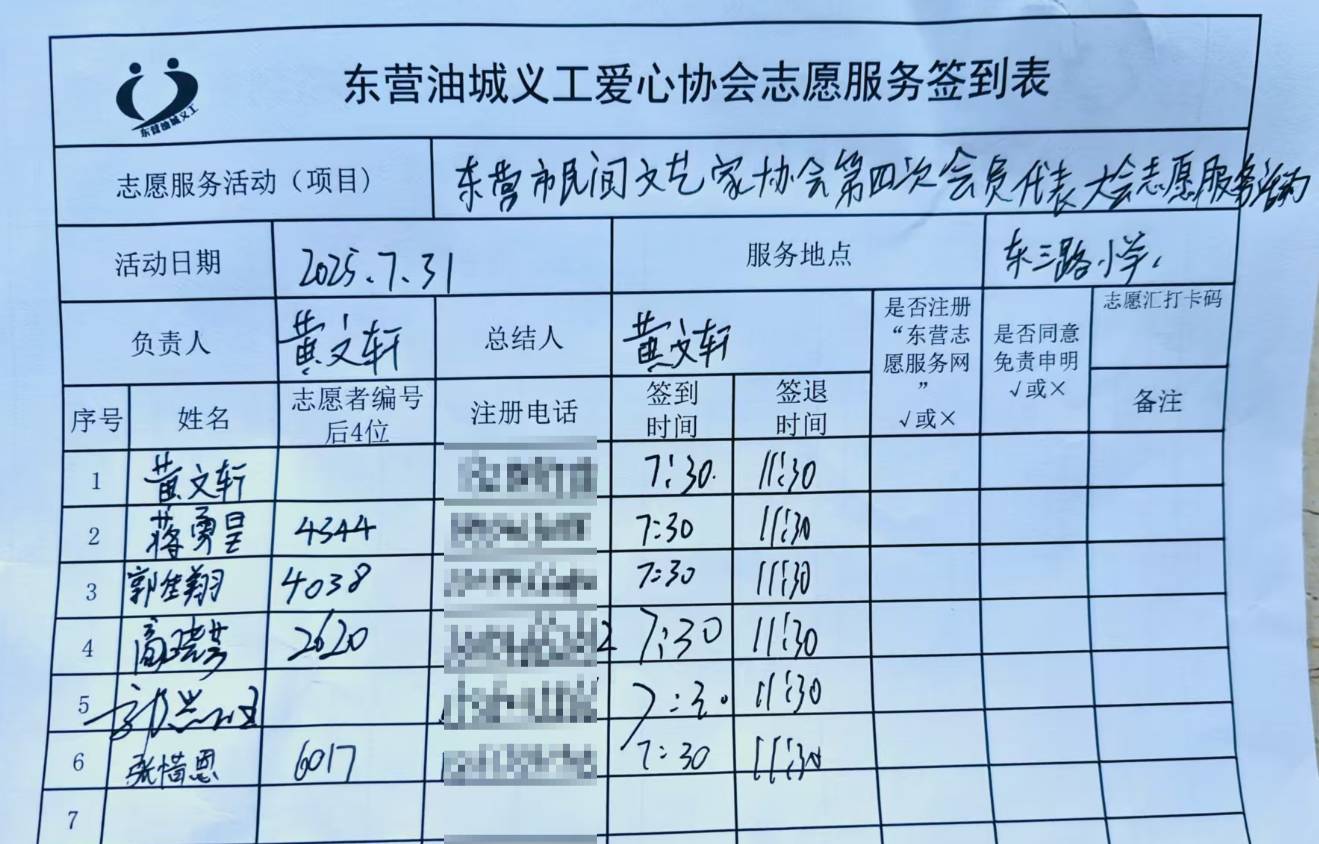 东营油城义工
东营油城义工爱心协会志愿服务签到表
志愿服务活动（项目） 东营市民间文艺家协会第四次会员代表大会志愿服务活动
活动日期 2025.7.31 服务地点 东三路小学.
负责人 黄文轩 总结人 黄文轩 是否注册“东营志愿服务网”√或× 是否同意免责申明√或× 志愿汇打卡码
序号 姓名 志愿者编号后4位 注册电话 签到时间 签退时间 备注
1 黄文轩 7:30. 11:30
2 蒋勇呈 4344 7:30 11:30
3 郭佳翔 4038 7:30 11:30
4 高 2620 2 7:30 11:30
5 7:30 11:30
6 张惜恩 6017 7:30 11:30
7